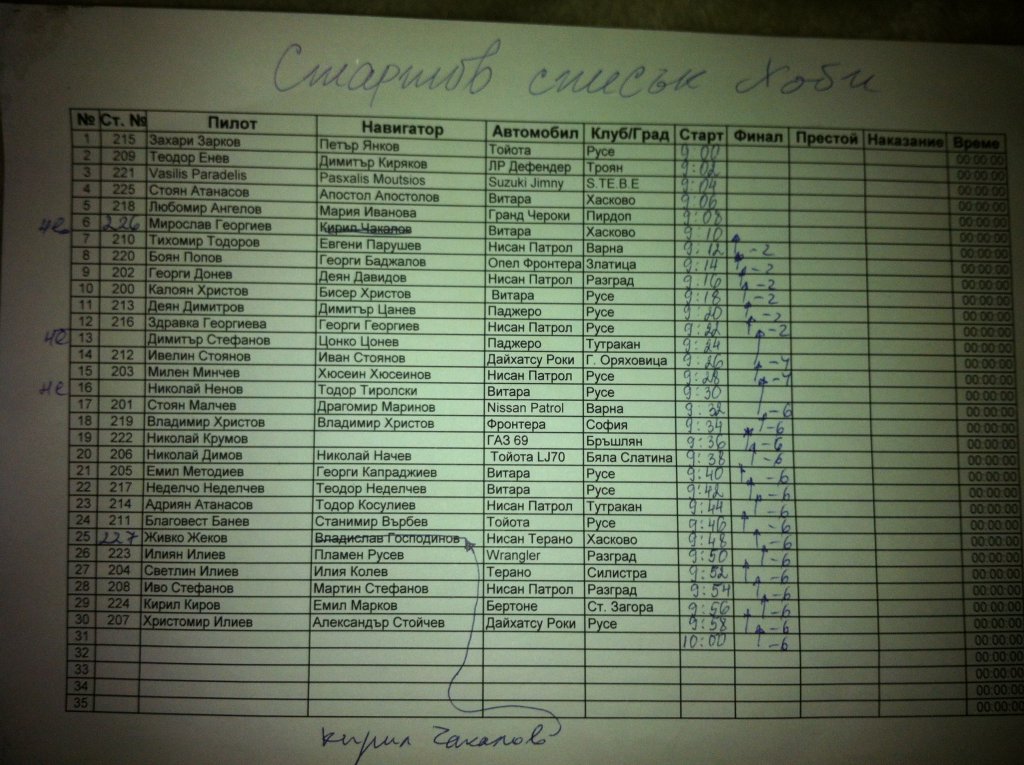 Стартов списък Хоби
№ Ст. № Пилот Навигатор Автомобил Клуб/Град Старт Финал Престой Наказание Време
1 215 Захари Зарков Петър Янков Тойота Русе 9:00 00:00:00
2 209 Теодор Енев Димитър Киряков ЛР Дефендер Троян 9:02 00:00:00
3 221 Vasilis Paradelis Pasxalis Moutsios Suzuki Jimny S.TE.B.E 9:04 00:00:00
4 225 Стоян Атанасов Апостол Апостолов Витара Хасково 9:06 00:00:00
5 218 Любомир Ангелов Мария Иванова Гранд Чероки Пирдоп 9:08 00:00:00
не 6 226 Мирослав Георгиев Кирил Чакалов Витара Хасково 9:10 00:00:00
7 210 Тихомир Тодоров Евгени Парушев Нисан Патрол Варна 9:12 -2 00:00:00
8 220 Боян Попов Георги Баджалов Опел Фронтера Златица 9:14 -2 00:00:00
9 202 Георги Донев Деян Давидов Нисан Патрол Разград 9:16 -2 00:00:00
10 200 Калоян Христов Бисер Христов Витара Русе 9:18 -2 00:00:00
11 213 Деян Димитров Димитър Цанев Паджеро Русе 9:20 -2 00:00:00
12 216 Здравка Георгиева Георги Георгиев Нисан Патрол Русе 9:22 -2 00:00:00
не 13 Димитър Стефанов Цонко Цонев Паджеро Тутракан 9:24 00:00:00
14 212 Ивелин Стоянов Иван Стоянов Дайхатсу Роки Г. Оряховица 9:26 -4 00:00:00
15 203 Милен Минчев Хюсеин Хюсеинов Нисан Патрол Русе 9:28 -4 00:00:00
не 16 Николай Ненов Тодор Тиролски Витара Русе 9:30 00:00:00
17 201 Стоян Малчев Драгомир Маринов Nissan Patrol Варна 9:32 -6 00:00:00
18 219 Владимир Христов Владимир Христов Фронтера София 9:34 -6 00:00:00
19 222 Николай Крумов ГАЗ 69 Бръшлян 9:36 -6 00:00:00
20 206 Николай Димов Николай Начев Тойота LJ70 Бяла Слатина 9:38 -6 00:00:00
21 205 Емил Методиев Георги Капраджиев Витара Русе 9:40 -6 00:00:00
22 217 Неделчо Неделчев Теодор Неделчев Витара Русе 9:42 -6 00:00:00
23 214 Адриян Атанасов Тодор Косулиев Нисан Патрол Тутракан 9:44 -6 00:00:00
24 211 Благовест Банев Станимир Върбев Тойота Русе 9:46 -6 00:00:00
25 227 Живко Жеков Владислав Господинов Нисан Терано Хасково 9:48 -6 00:00:00
26 223 Илиян Илиев Пламен Русев Wrangler Разград 9:50 -6 00:00:00
27 204 Светлин Илиев Илия Колев Терано Силистра 9:52 -6 00:00:00
28 208 Иво Стефанов Мартин Стефанов Нисан Патрол Разград 9:54 -6 00:00:00
29 224 Кирил Киров Емил Марков Бертоне Ст. Загора 9:56 -6 00:00:00
30 207 Христомир Илиев Александър Стойчев Дайхатсу Роки Русе 9:58 -6 00:00:00
31 10:00 -6 00:00:00
32 00:00:00
33 00:00:00
34 00:00:00
35 00:00:00
Кирил Чакалов